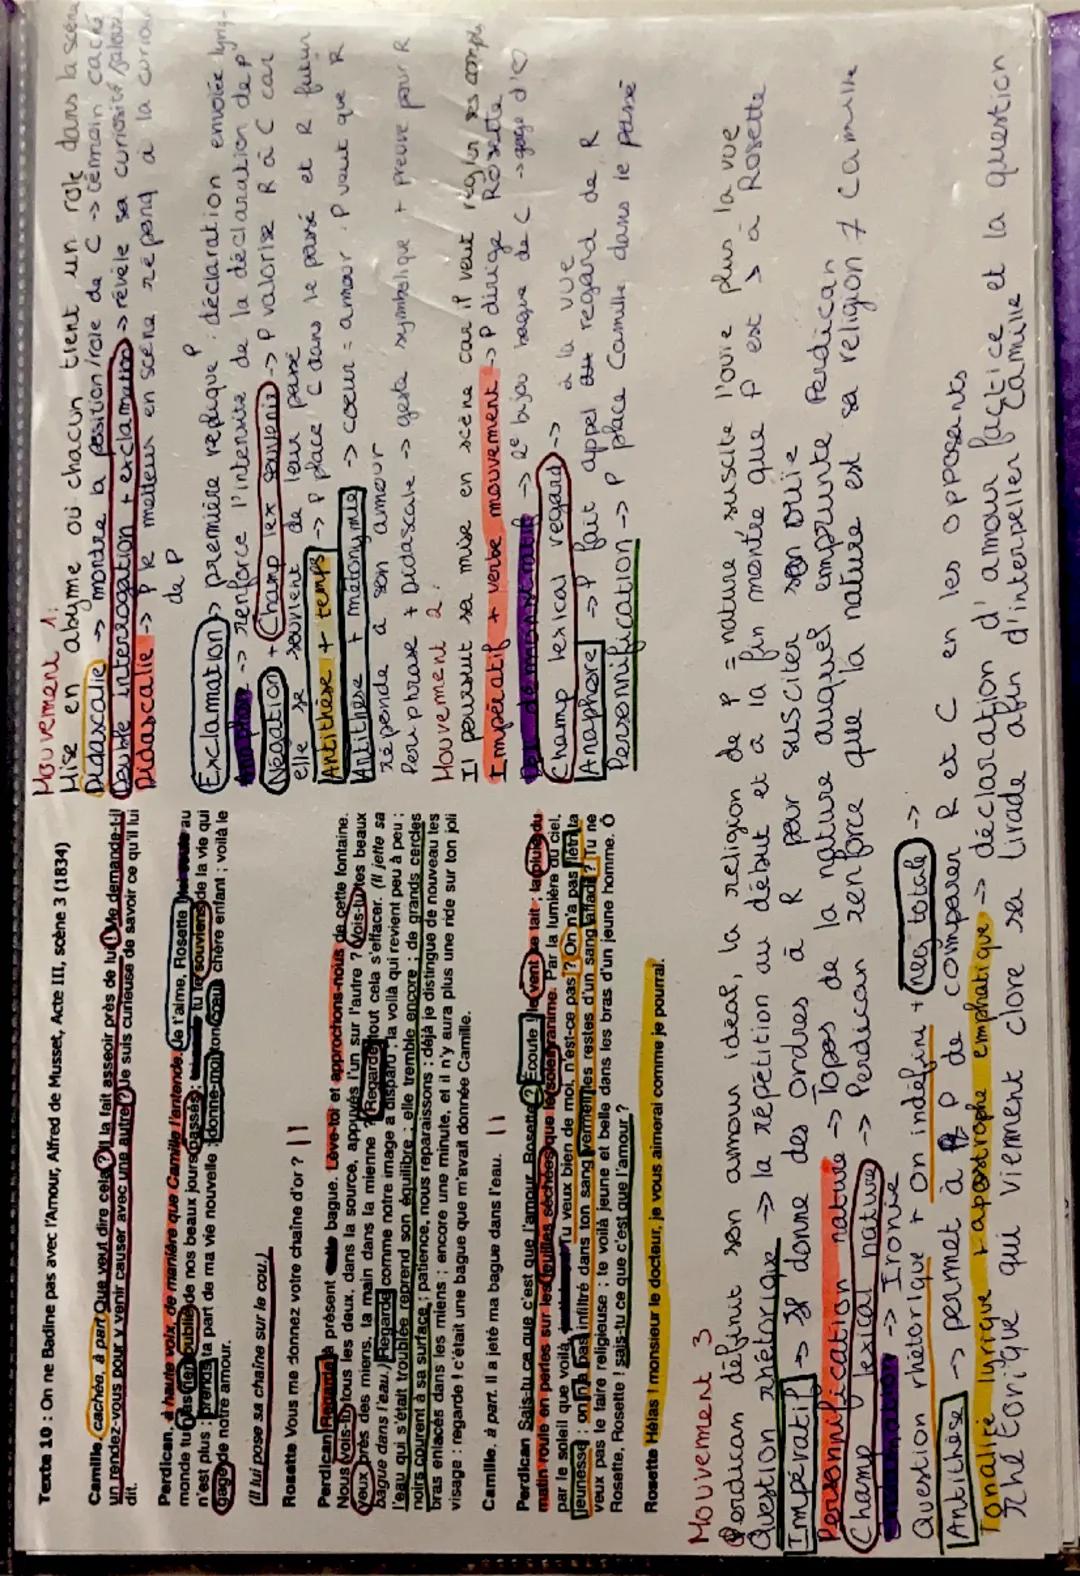 Texte 10 : On ne Badine pas avec l'Amour, Alfred de Musset, Acte III, scène 3 (1834)
Camille, cachée, à part Que veut dire cela ? Il la fait asseoir près de lui ! Me demande-t-il
un rendez-vous pour y venir causer avec une autre ? Je suis curieuse de savoir ce qu'il lui
dit.
Perdican, à haute voix, de manière que Camille l'entende. Je t'aime, Rosette ! toi seule au
monde tu n'as rien oublié de nos beaux jours passés ; tu te souviens de la vie qui
n'est plus ; prends ta part de ma vie nouvelle ; donne-moi ton cœur, chère enfant ; voilà le
gage de notre amour.
(Il lui pose sa chaîne sur le cou.)
Rosette Vous me donnez votre chaîne d'or ? //
Perdican Regarde à présent cette bague. Lève-toi et approchons-nous de cette fontaine.
Nous vois-tu tous les deux, dans la source, appuyés l'un sur l'autre ? Vois-tu tes beaux
yeux près des miens, ta main dans la mienne ? Regarde tout cela s'effacer. (Il jette sa
bague dans l'eau.) Regarde comme notre image a disparu ; la voilà qui revient peu à peu ;
l'eau qui s'était troublée reprend son équilibre ; elle tremble encore ; de grands cercles
noirs courent à sa surface ; patience, nous reparaissons ; déjà je distingue de nouveau tes
bras enlacés dans les miens ; encore une minute, et il n'y aura plus une ride sur ton joli
visage : regarde ! c'était une bague que m'avait donnée Camille.
Camille, à part. Il a jeté ma bague dans l'eau. //
Perdican Sais-tu ce que c'est que l'amour, Rosette ? Écoute ! le vent se tait ; la pluie du
matin roule en perles sur les feuilles séchées que le soleil ranime. Par la lumière du ciel,
par le soleil que voilà, Tu veux bien de moi, n'est-ce pas ? On n'a pas flétri ta
jeunesse ; on n'a pas infiltré dans ton sang vermeil les restes d'un sang affadi ? Tu ne
veux pas te faire religieuse ; te voilà jeune et belle dans les bras d'un jeune homme. Ô
Rosette, Rosette ! sais-tu ce que c'est que l'amour ?
Rosette Hélas ! monsieur le docteur, je vous aimerai comme je pourrai.
Mouvement 1 :
Mise en abyme où chacun tient un role dans la scène
Didascalie -> montre la position/role de C -> témoin caché
Double interrogation + exclamation -> révèle sa curiosité/jalousie
Didascalie -> P le metteur en scène répond à la curio
de P
Exclamation -> première replique P : déclaration envoiée lyriq-
Anaphore -> renforce l'intensité de la déclaration de P
Négation + Champ lex souvenir -> P valorise R à C car
elle se souvient de leur passé
Antithèse + temps -> P place C dans le passé et R futur
Antithèse + métonymie -> coeur = amour, P veut que R
réponde à son amour
Peri phrase + Didascale -> geste symbolique + preuve pour R
Mouvement 2 :
Il poursuit sa mise en scène car il veut régler ses compts
Impératif + verbe mouvement -> P dirige Rosette
démonstratif -> 2e bijou bague de C -> gage d'♡
Champ lexical regard -> à la vue
Anaphore -> P fait appel au regard de R
Personnification -> P place Camille dans le passé
Mouvement 3
Perdican définit son amour idéal, la religion de P = nature, suscite l'ouïe plus la vue
Question rhétorique -> la répétition au début et à la fin montre que P est > à Rosette
Impératif -> P donne des ordres à R pour susciter son ouïe
Personnification nature -> Topos de la nature auquel emprunte Perdican
Champ lexical nature -> Perdican renforce que la nature est sa religion ≠ Camille
Exclamation -> Ironie
Question rhétorique + On indéfini + neg totale ->
Antithèse -> permet à P de comparer R et C en les opposants
Tonalité lyrique + apostrophe emphatique -> déclaration d'amour factice et la question
rhétorique qui viennent clore sa tirade afin d'interpeller Camille